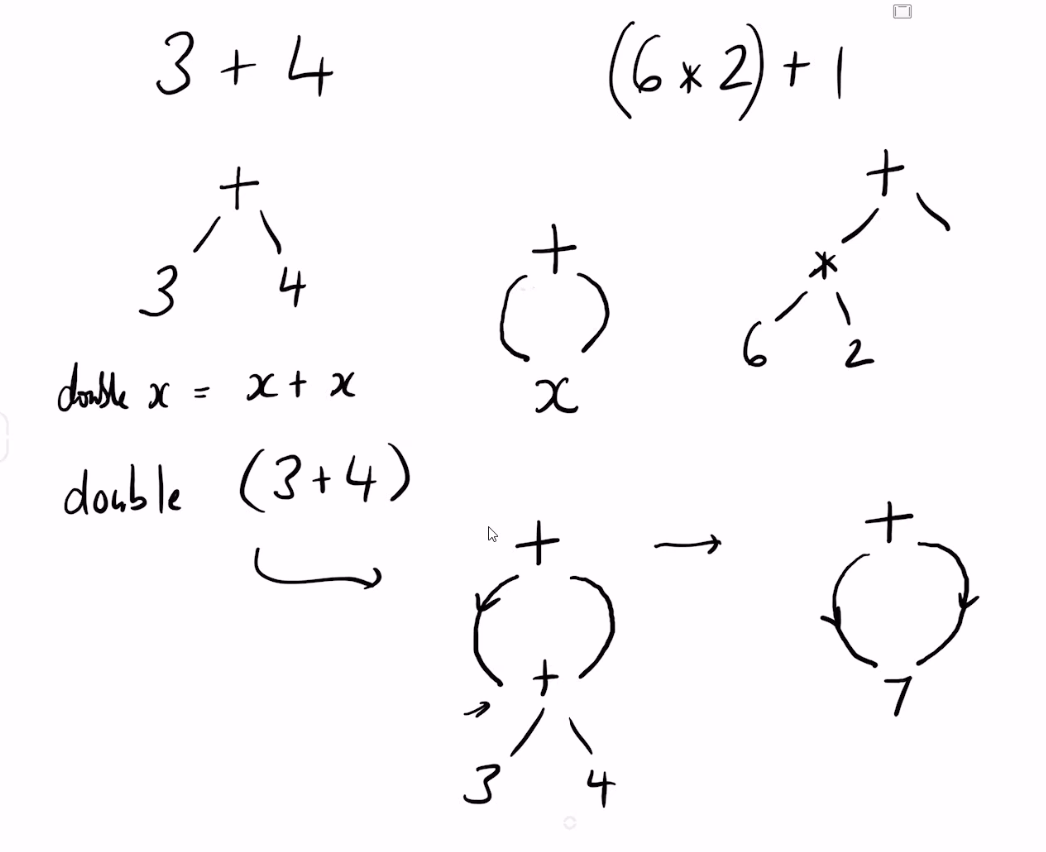 3 + 4
(6 * 2) + 1
+
3 4
+
x
+
*
6 2
double x = x + x
double (3+4)
+
+
3 4
+
7